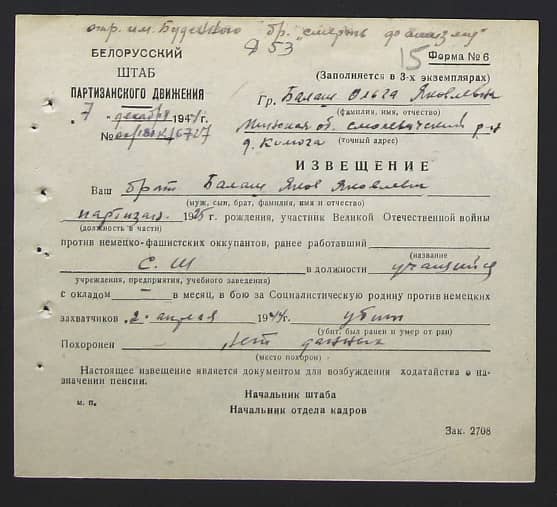 отр. им. Буденного бр. "смерть фашизму"
Д 53
15 Форма № 6
БЕЛОРУССКИЙ
ШТАБ
ПАРТИЗАНСКОГО ДВИЖЕНИЯ
7 " декабря 1944 г.
№
(Заполняется в 3-х экземплярах)
Гр. Балаш Ольга Яковлевна
(фамилия, имя, отчество)
Минская об. смолевичский р-н
(точный адрес)
д.
ИЗВЕЩЕНИЕ
Ваш брат Балаш Яков Яковлевич
(муж, сын, брат, фамилия, имя и отчество)
партизан 1925 г. рождения, участник Великой Отечественной войны
(должность в части)
против немецко-фашистских оккупантов, ранее работавший
(название
С. Ш в должности учащийся
учреждения, предприятия, учебного заведения)
с окладом — в месяц, в бою за Социалистическую родину против немецких
захватчиков 2 апреля 1944 г. убит
(убит, был ранен и умер от ран)
Похоронен нет данных
(место похорон)
Настоящее извещение является документом для возбуждения ходатайства о на-
значении пенсии.
Начальник штаба
м. п.
Начальник отдела кадров
Зак. 2708